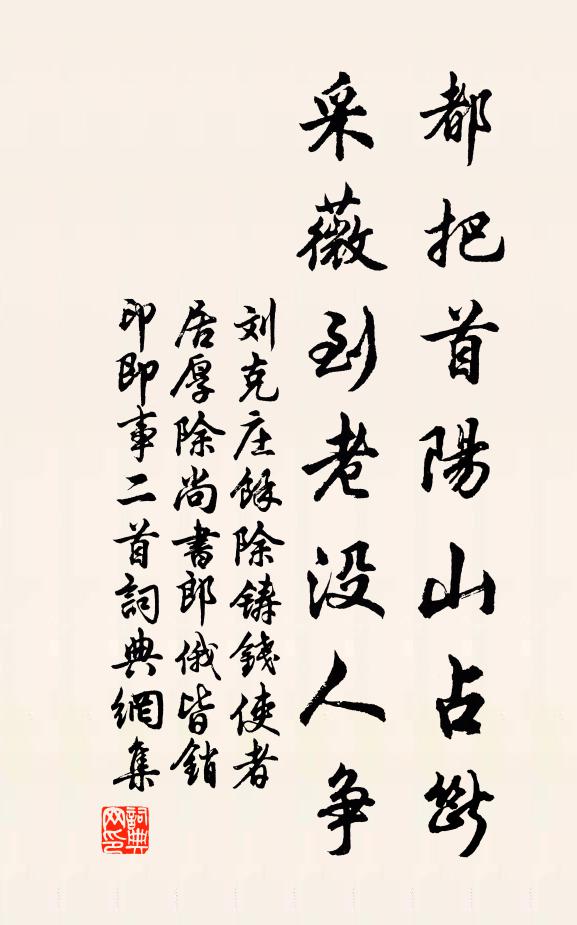 都把首陽山占斷
采薇到老没人争
刘克庄餘除鑄錢使者
居厚除尚書郎俄皆銷
印即事二首詞典網集
詞典网印